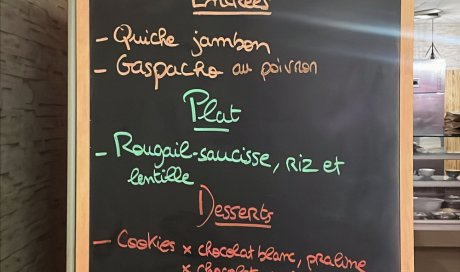 Entrées
- Quiche jambon
- Gaspacho au poivron
Plat
- Rougail-saucisse, riz et
lentille
Desserts
- Cookies x chocolat blanc, praline
x chocolat